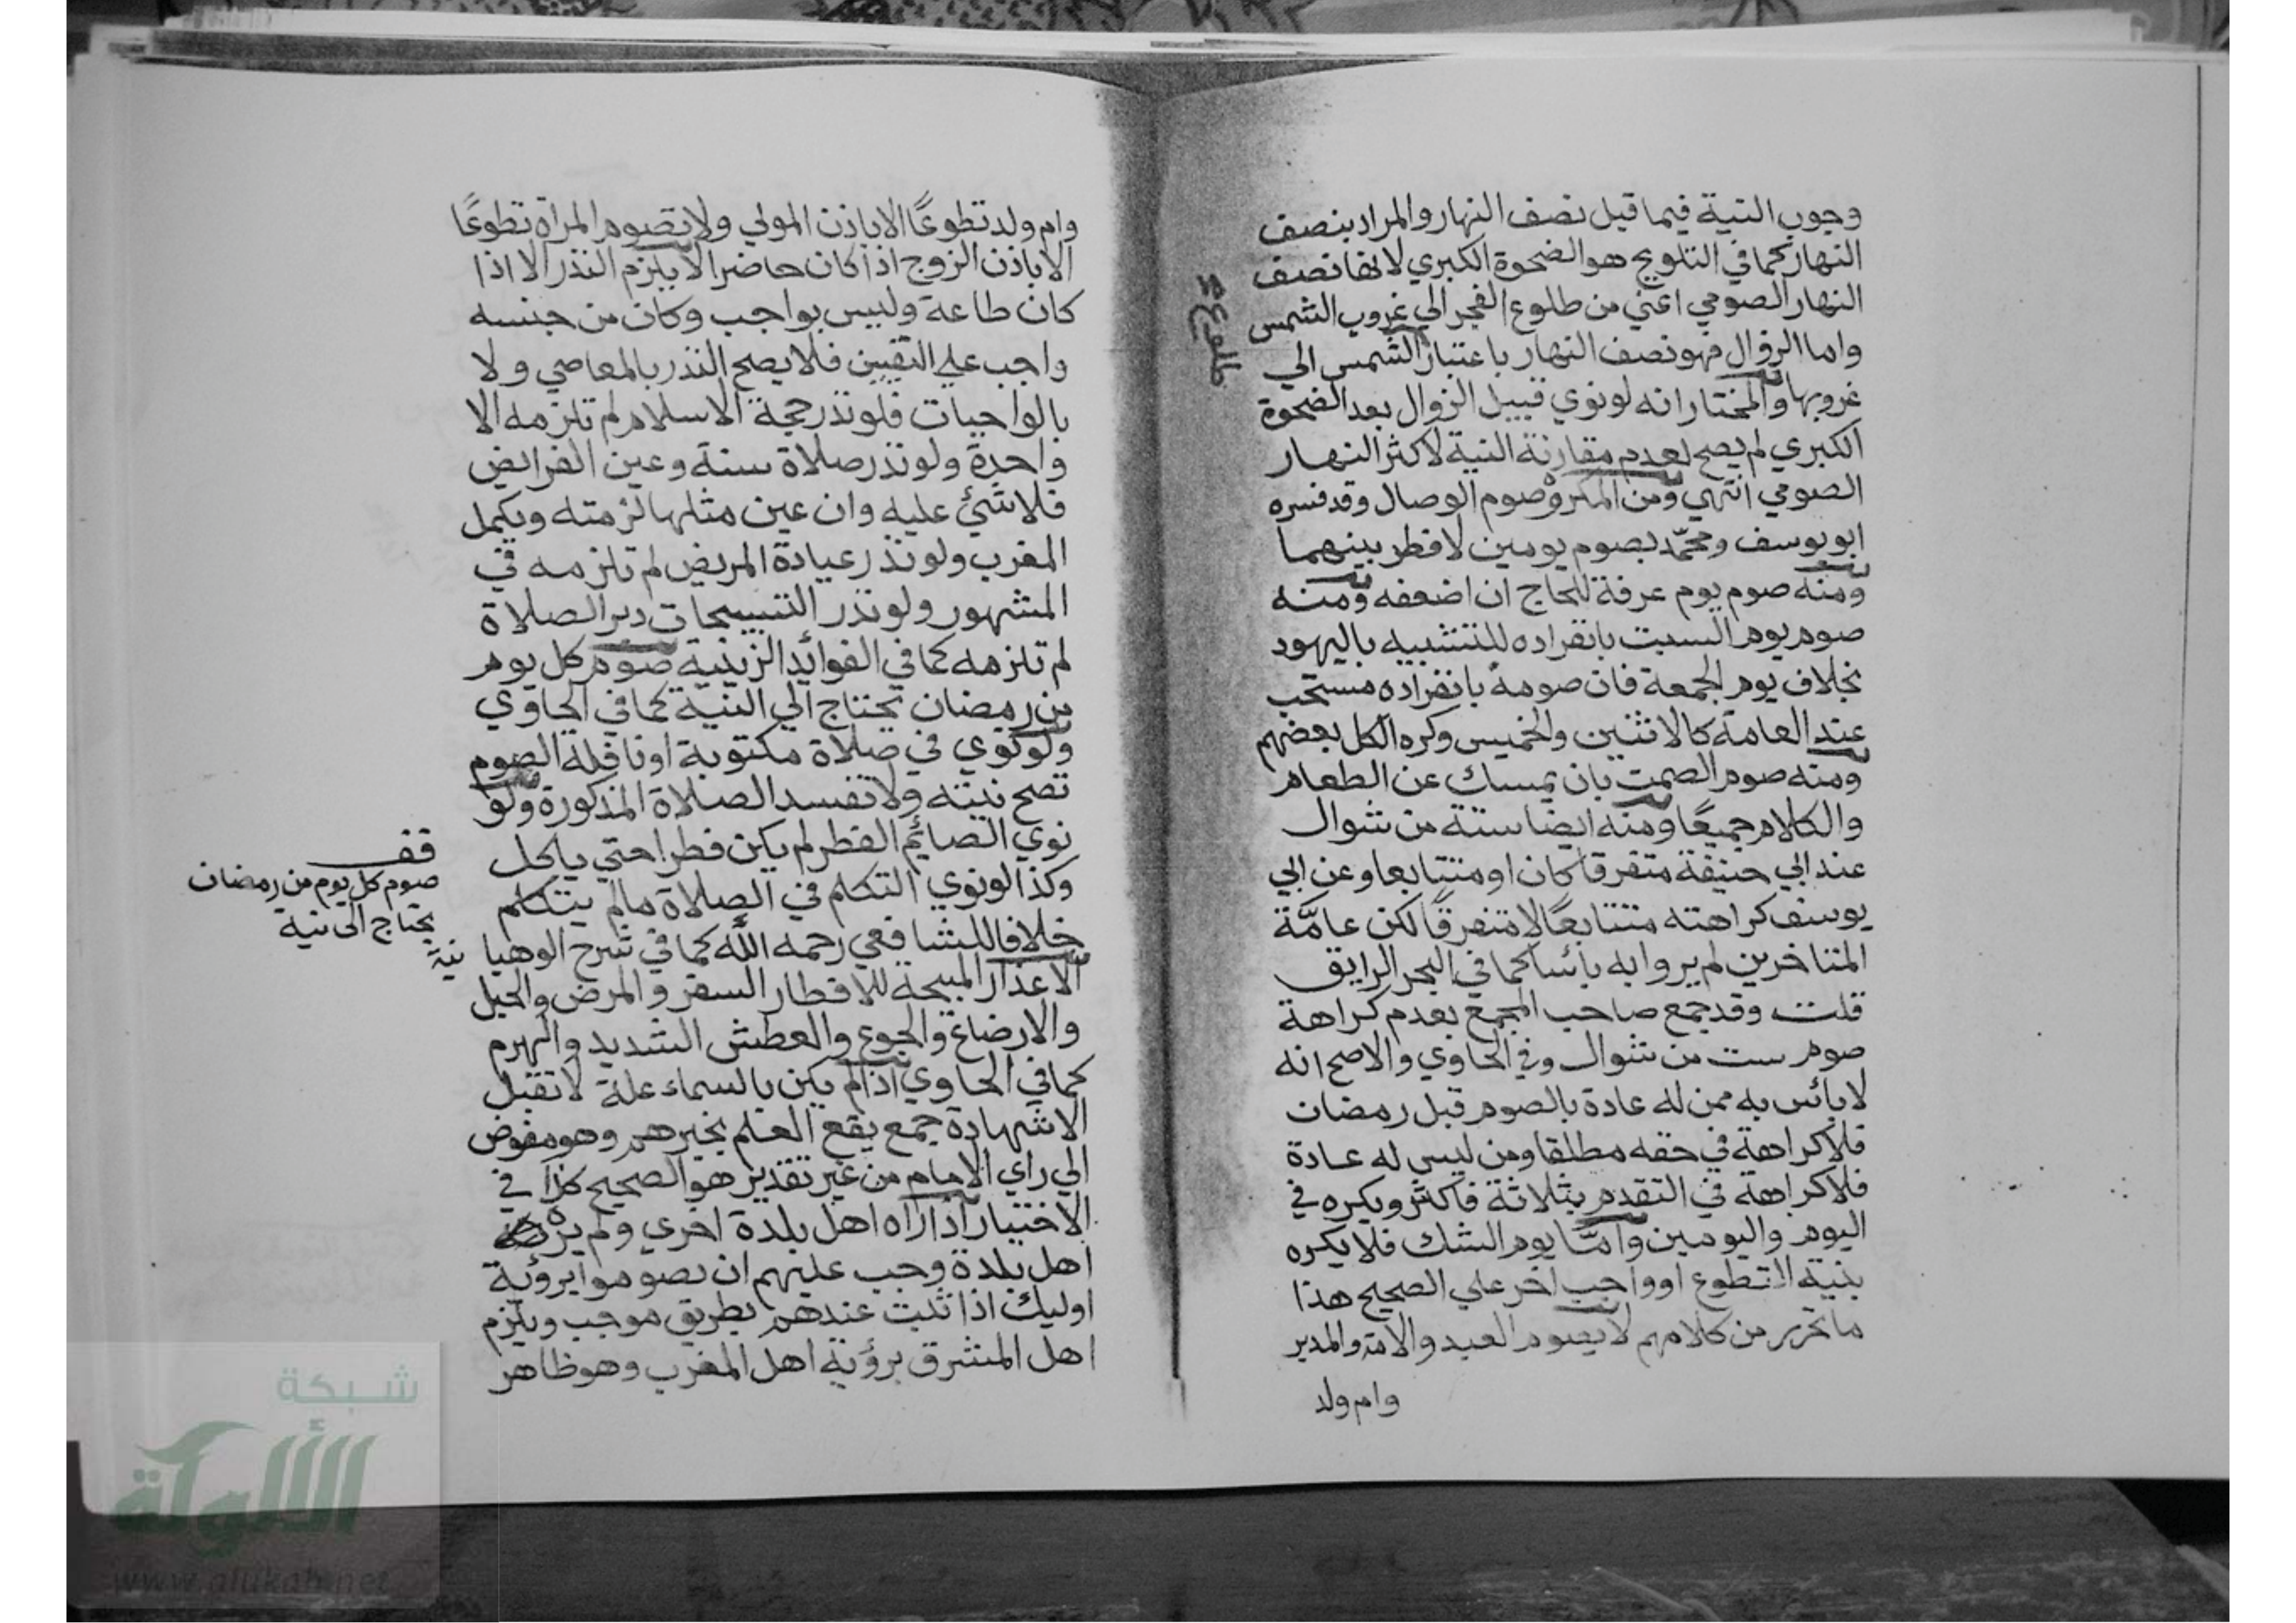 وجوب النية فيما قبل نصف النهار والمراد بنصف
النهار كما في التلويح هو الضحوة الكبري لانها نصف
النهار الصومي اعني من طلوع الفجر الي غروب الشمس
واما الزوال فهو نصف النهار باعتبار الشمس الي
طلوع
غروبها والمختار انه لو نوي قبيل الزوال بعد الضحوة
الكبري لم يصح لعدم مقارنة النية لاكثر النهار
الصومي انتهي ومن المكروه صوم الوصال وقد فسره
ابو يوسف ومحمد بصوم يومين لا فطر بينهما
ومنه صوم يوم عرفة للحاج ان اضعفه ومنه
صوم يوم السبت بانفراده للتشبيه باليهود
بخلاف يوم الجمعة فان صومه بانفراده مستحب
عند العامة كالاثنين والخميس وكره الكل بعضهم
ومنه صوم الصمت بان يمسك عن الطعام
والكلام جميعًا ومنه ايضا ستة من شوال
عند ابي حنيفة متفرقا كان او متتابعا وعن ابي
يوسف كراهته متتابعًا لا متفرقًا لكن عامَّة
المتاخرين لم يروا به بائسا كما في البحر الرايق
قلت وقد جمع صاحب المجمع بعدم كراهة
صوم ست من شوال وفي الحاوي والاصح انه
لا بائس به ممن له عادة بالصوم قبل رمضان
فلا كراهة في حقه مطلقا ومن ليس له عادة
فلا كراهة في التقدم بثلاثة فاكثر ويكره في
اليوم واليومين وامَّا يوم الشك فلا يكره
بنية التطوع او واجب اخر علي الصحيح هذا
ما تحرر من كلامهم لا يصوم العبد والامة والمدبر
وام ولد
وام ولد تطوعًا الا باذن المولي ولا تصوم المراة تطوعًا
الا باذن الزوج اذا كان حاضرا لا يلزم النذر الا اذا
كان طاعة وليس بواجب وكان من جنسه
واجب علي التعيين فلا يصح النذر بالمعاصي ولا
بالواجبات فلو نذر حجة الاسلام لم تلزمه الا
واحدة ولو نذر صلاة سنة وعين الفرايض
فلا شئ عليه وان عين مثلها لزمته ويكمل
المغرب ولو نذر عيادة المريض لم تلزمه في
المشهور ولو نذر التسبيحات دبر الصلاة
لم تلزمه كما في الفوائد الزينية صوم كل يوم
من رمضان يحتاج الي النية كما في الحاوي
ولو نوي في صلاة مكتوبة او نافلة الصوم
تصح نيته ولا تفسد الصلاة المذكورة ولو
نوي الصايم الفطر لم يكن فطرا حتي ياكل
وكذا لو نوي التكلم في الصلاة مالم يتكلم
خلافا للشافعي رحمه الله كما في شرح الوهبا نية
الاعذار المبيحة للافطار السفر والمرض والحبل
والارضاع والجوع والعطش الشديد والهرم
كما في الحاوي اذا لم يكن بالسماء علة لا تقبل
الا شهادة جمع يقع العلم بخبرهم وهو مفوض
الي راي الامام من غير تقدير هو الصحيح كذا في
الاختيار اذا راه اهل بلدة اخري ولم يره
اهل بلدة وجب عليهم ان يصوموا برؤية
اوليك اذا ثبت عندهم بطريق موجب ويلزم
اهل المشرق برؤية اهل المغرب وهو ظاهر
قف
صوم كل يوم من رمضان
يحتاج الى نية
شبكة
الألوكة
www.alukah.net